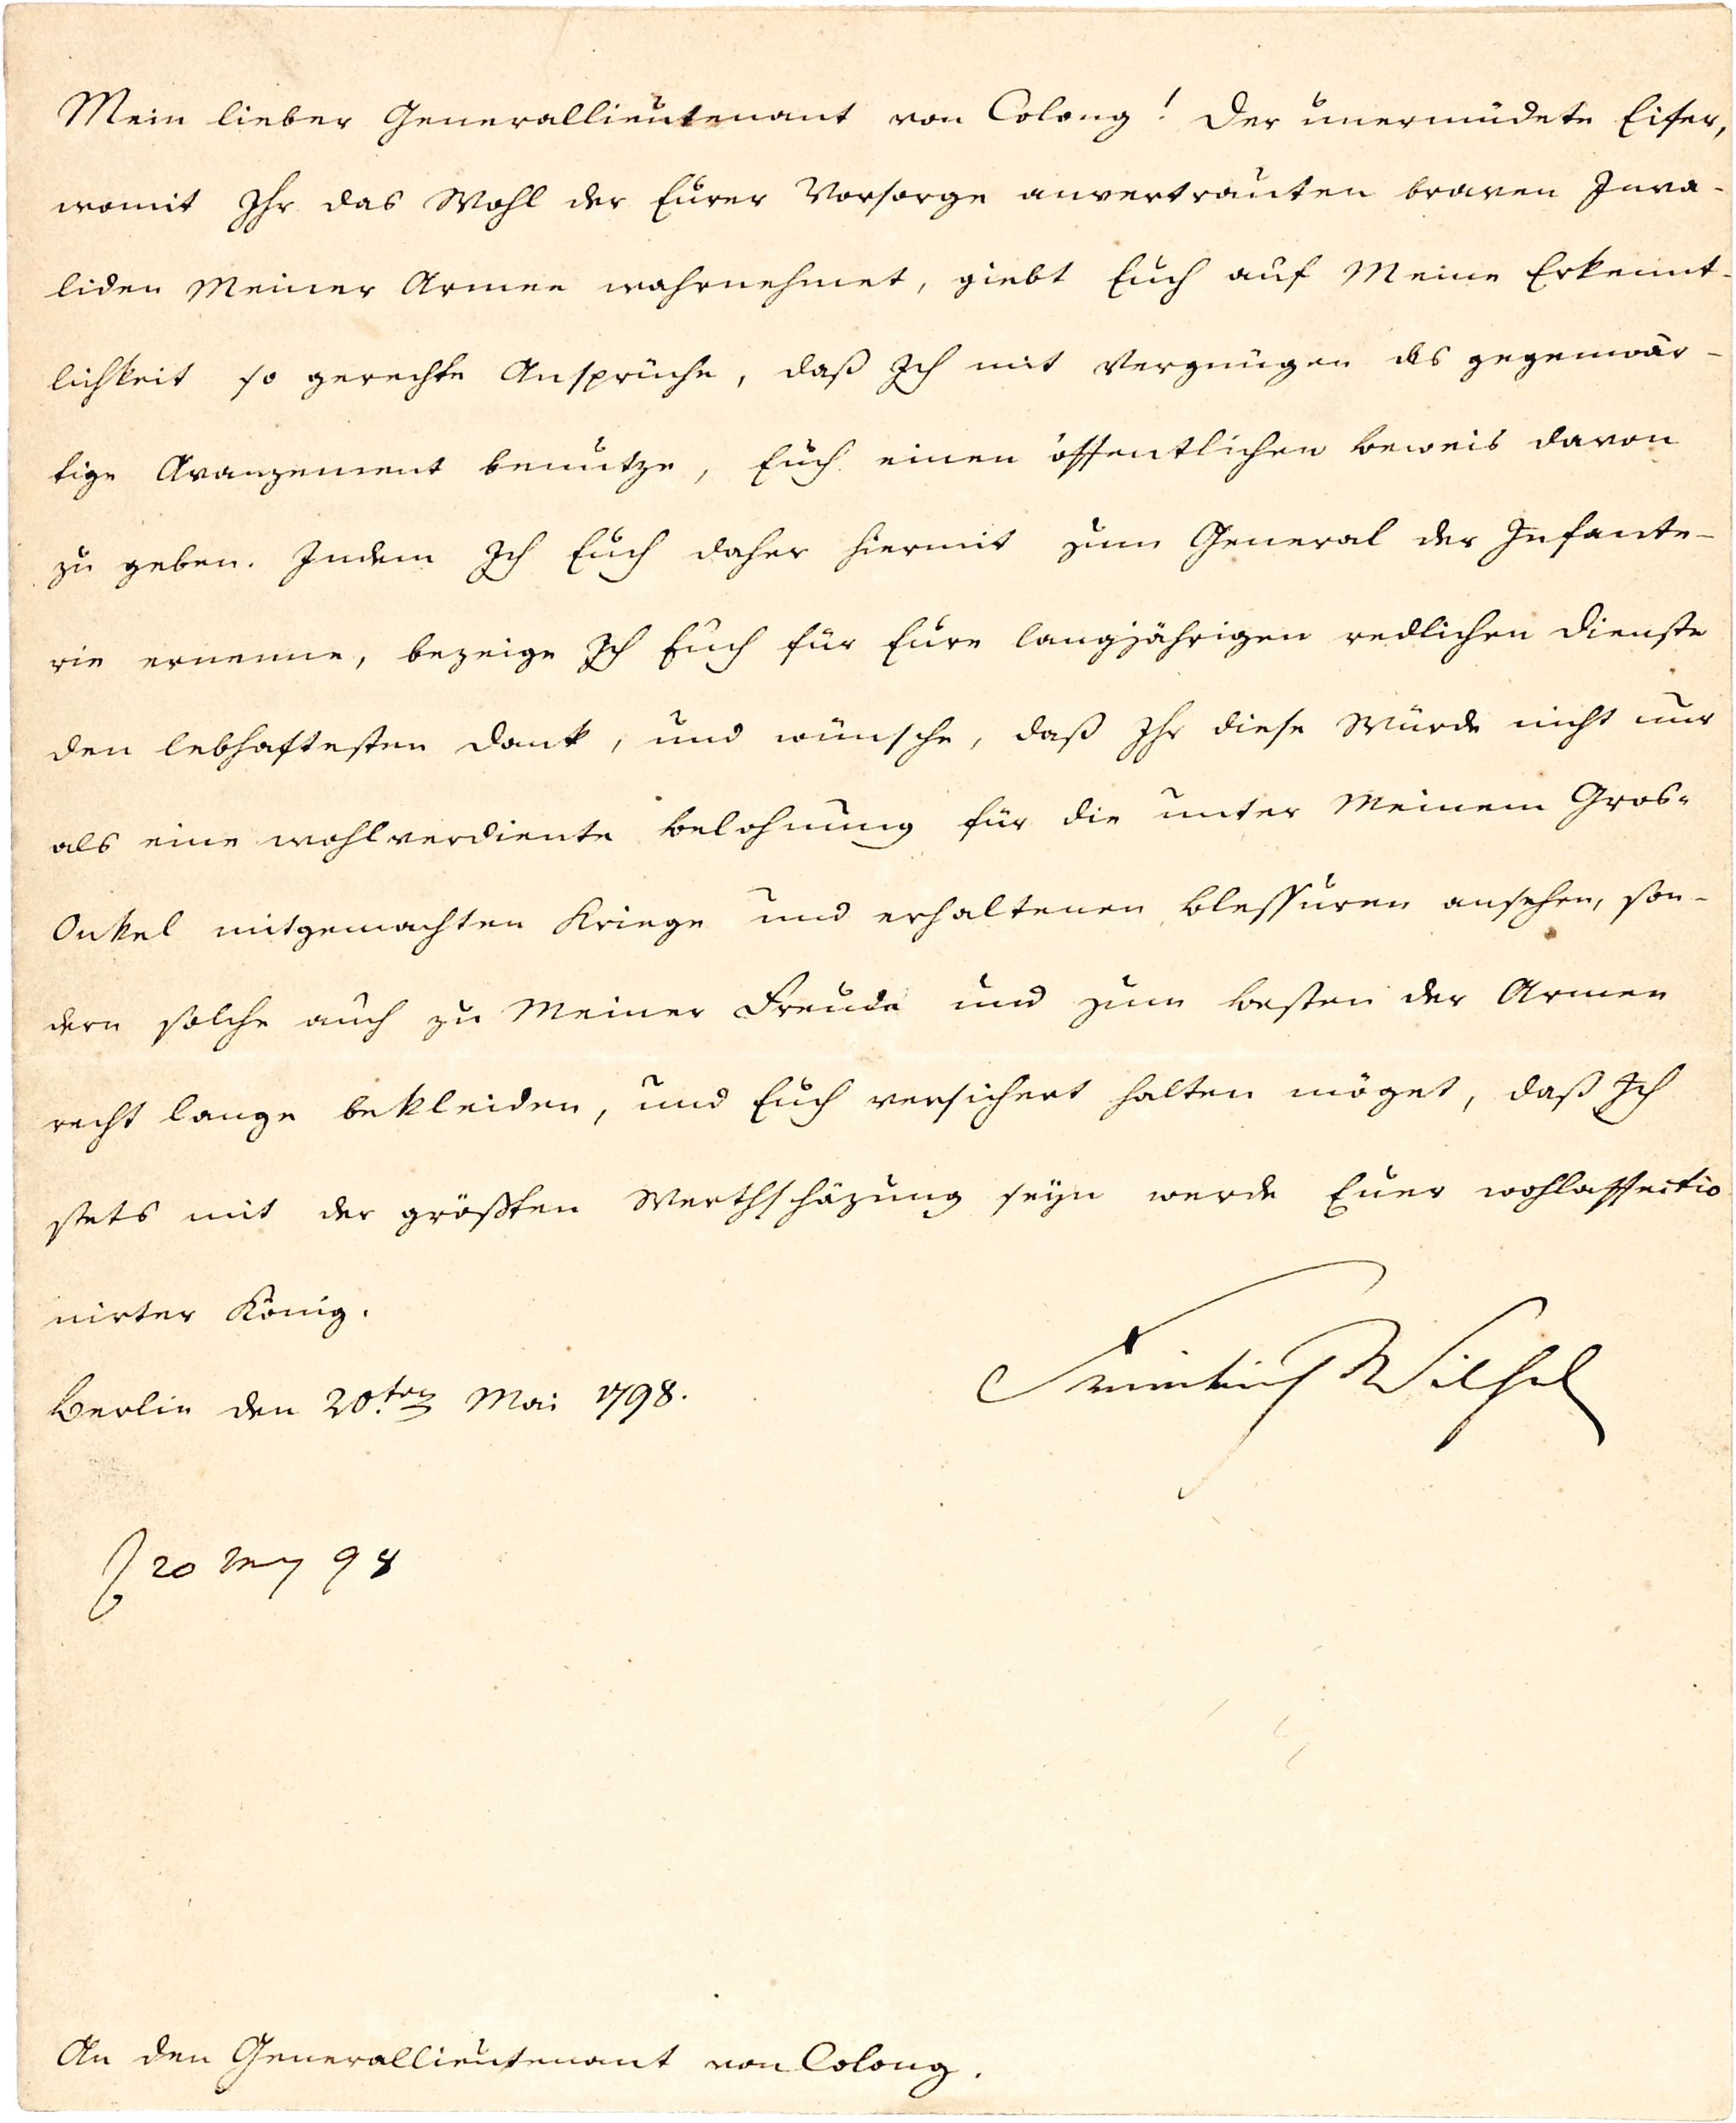 Mein lieber Generallieutenant von Colong! Der unermüdete Eifer,
womit Ihr das Wohl der Eurer Vorsorge anvertrauten braven Inva-
liden Meiner Armee wahrnehmet, giebt Euch auf Meine Erkennt-
lichkeit so gerechte Ansprüche, daß Ich mit Vergnügen das gegenwär-
tige Avanzement benutze, Euch einen öffentlichen Beweis davon
zu geben. Indem Ich Euch daher hiermit zum General der Infante-
rie ernenne, bezeige Ich Euch für Eure langjährigen redlichen Dienste
den lebhaftesten Dank, und wünsche, daß Ihr diese Würde nicht nur
als eine wohlverdiente Belohnung für die unter Meinem Gros-
Onkel mitgemachten Kriege und erhaltenen Blessuren ansehen, son-
dern solche auch zu Meiner Freude und zum Besten der Armee
recht lange bekleiden, und Euch versichert halten möget, daß Ich
stets mit der größten Werthschäzung seyn werde Euer wohlaffectio
nirter König.
Friedrich Wilhelm
Berlin den 20.ten Mai 1798.
20 May 98
An den Generallieutenant von Colong.